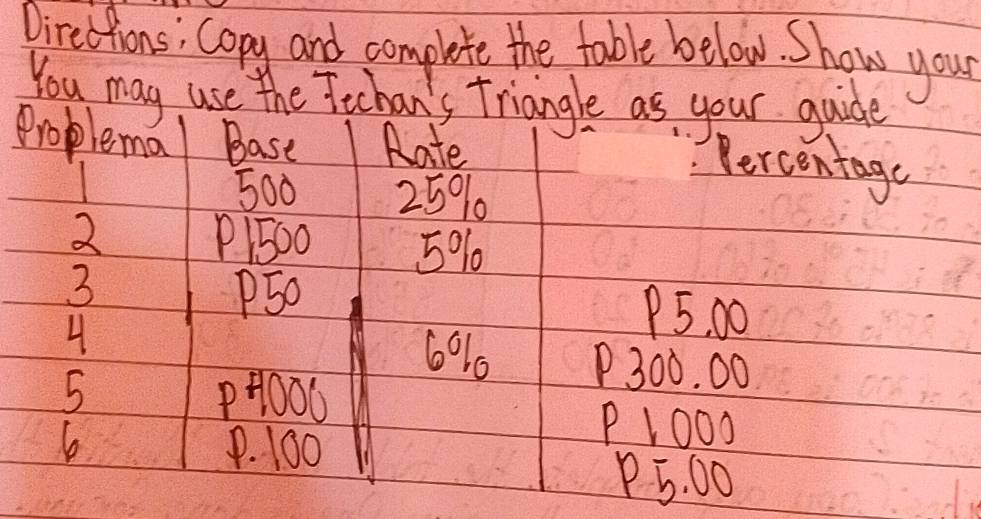 Directions: Copy and complete the table below. Show your
You may use the Techan's Triangle as your guide
Problema Base Rate Percentage
1 500 25%
2 P1500 5%
3 P50 P5.00
4 6% P300.00
5 P4000 P1000
6 P.100 P5.00